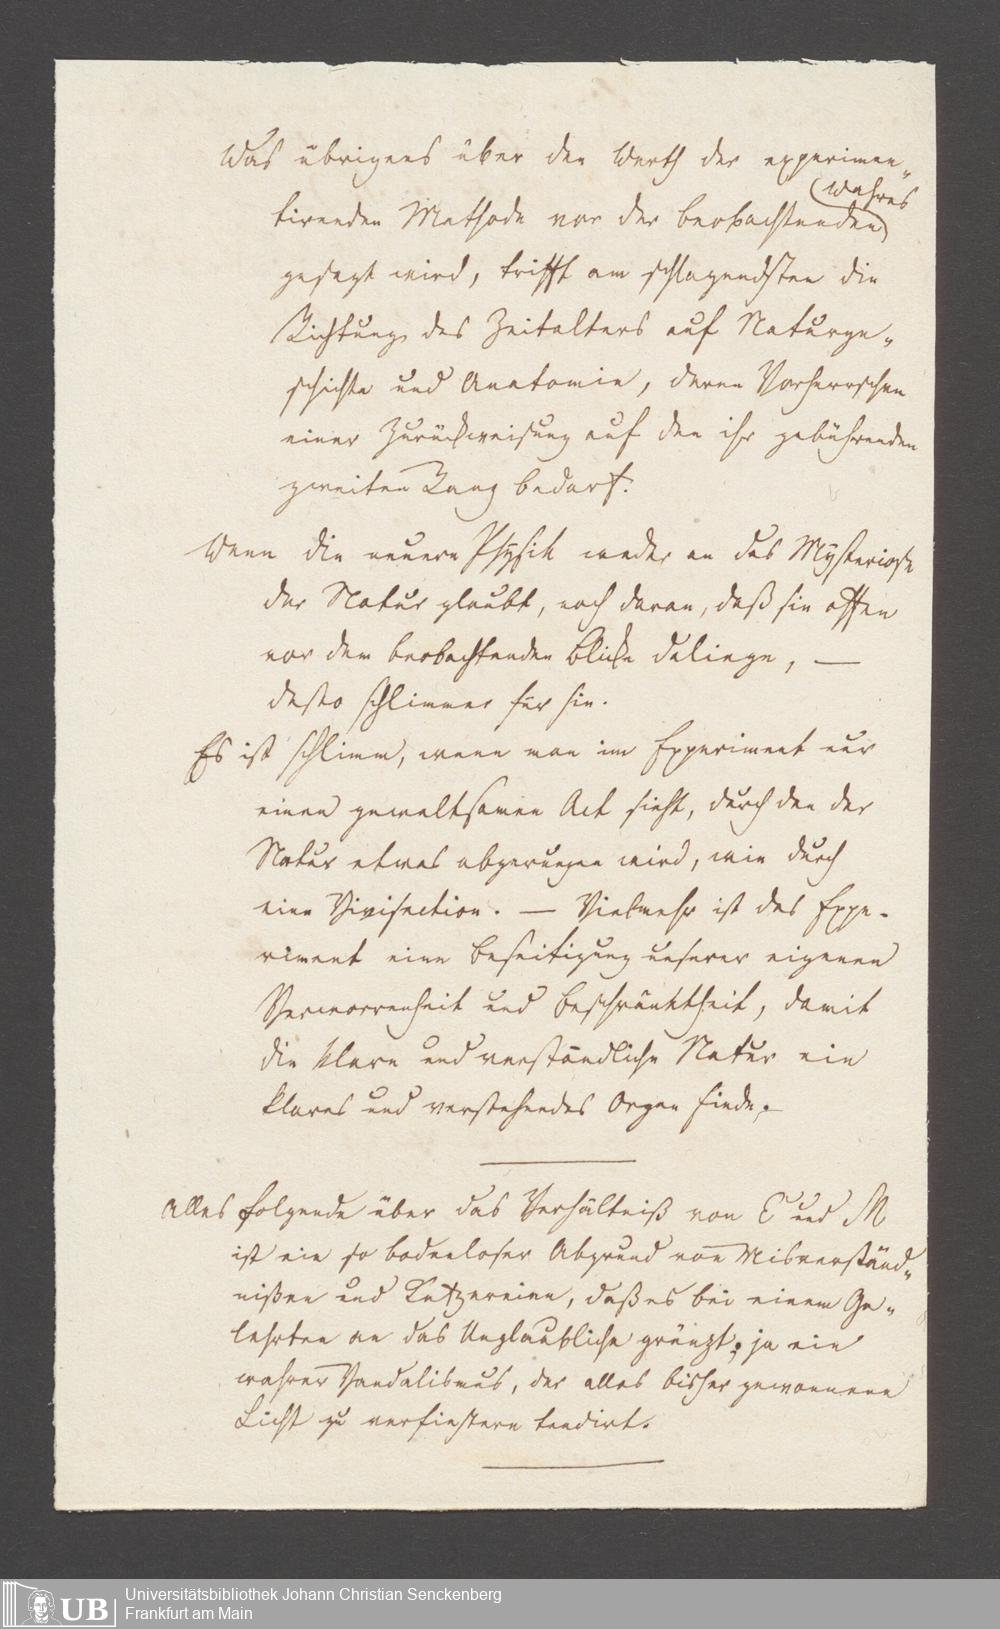 Was übrigens über den Werth der experimen„
tirenden Methode vor der beobachtenden
wahres
gesagt wird, trifft am schlagendsten die
Richtung des Zeitalters auf Naturge„
schichte und Anatomie, deren Vorherrschen
einer Zurückweisung auf den ihr gebührenden
zweiten Rang bedarf.
Wenn die neuere Physik weder an das Mysteriose
der Natur glaubt, noch daran, daß sie offen
vor dem beobachtenden Blicke daliege, —
desto schlimmer für sie.
Es ist schlimm, wenn man im Experiment nur
einen gewaltsamen Act sieht, durch den der
Natur etwas abgerungen wird, wie durch
eine Vivisection. — Vielmehr ist das Expe-
riment eine Beseitigung unserer eigenen
Verworrenheit und Beschränktheit, damit
die klare und verständliche Natur ein
klares und verstehendes Organ finde.
Alles folgende über das Verhältniß von E und M
ist ein so bodenloser Abgrund von Misverständ„
nißen und Ketzereien, daß es bei einem Ge„
lehrten an das Unglaubliche gränzt; ja ein
wahrer Vandalismus, der alles bisher gewonnene
Licht zu verfinstern tendirt.
UB
Universitätsbibliothek Johann Christian Senckenberg
Frankfurt am Main